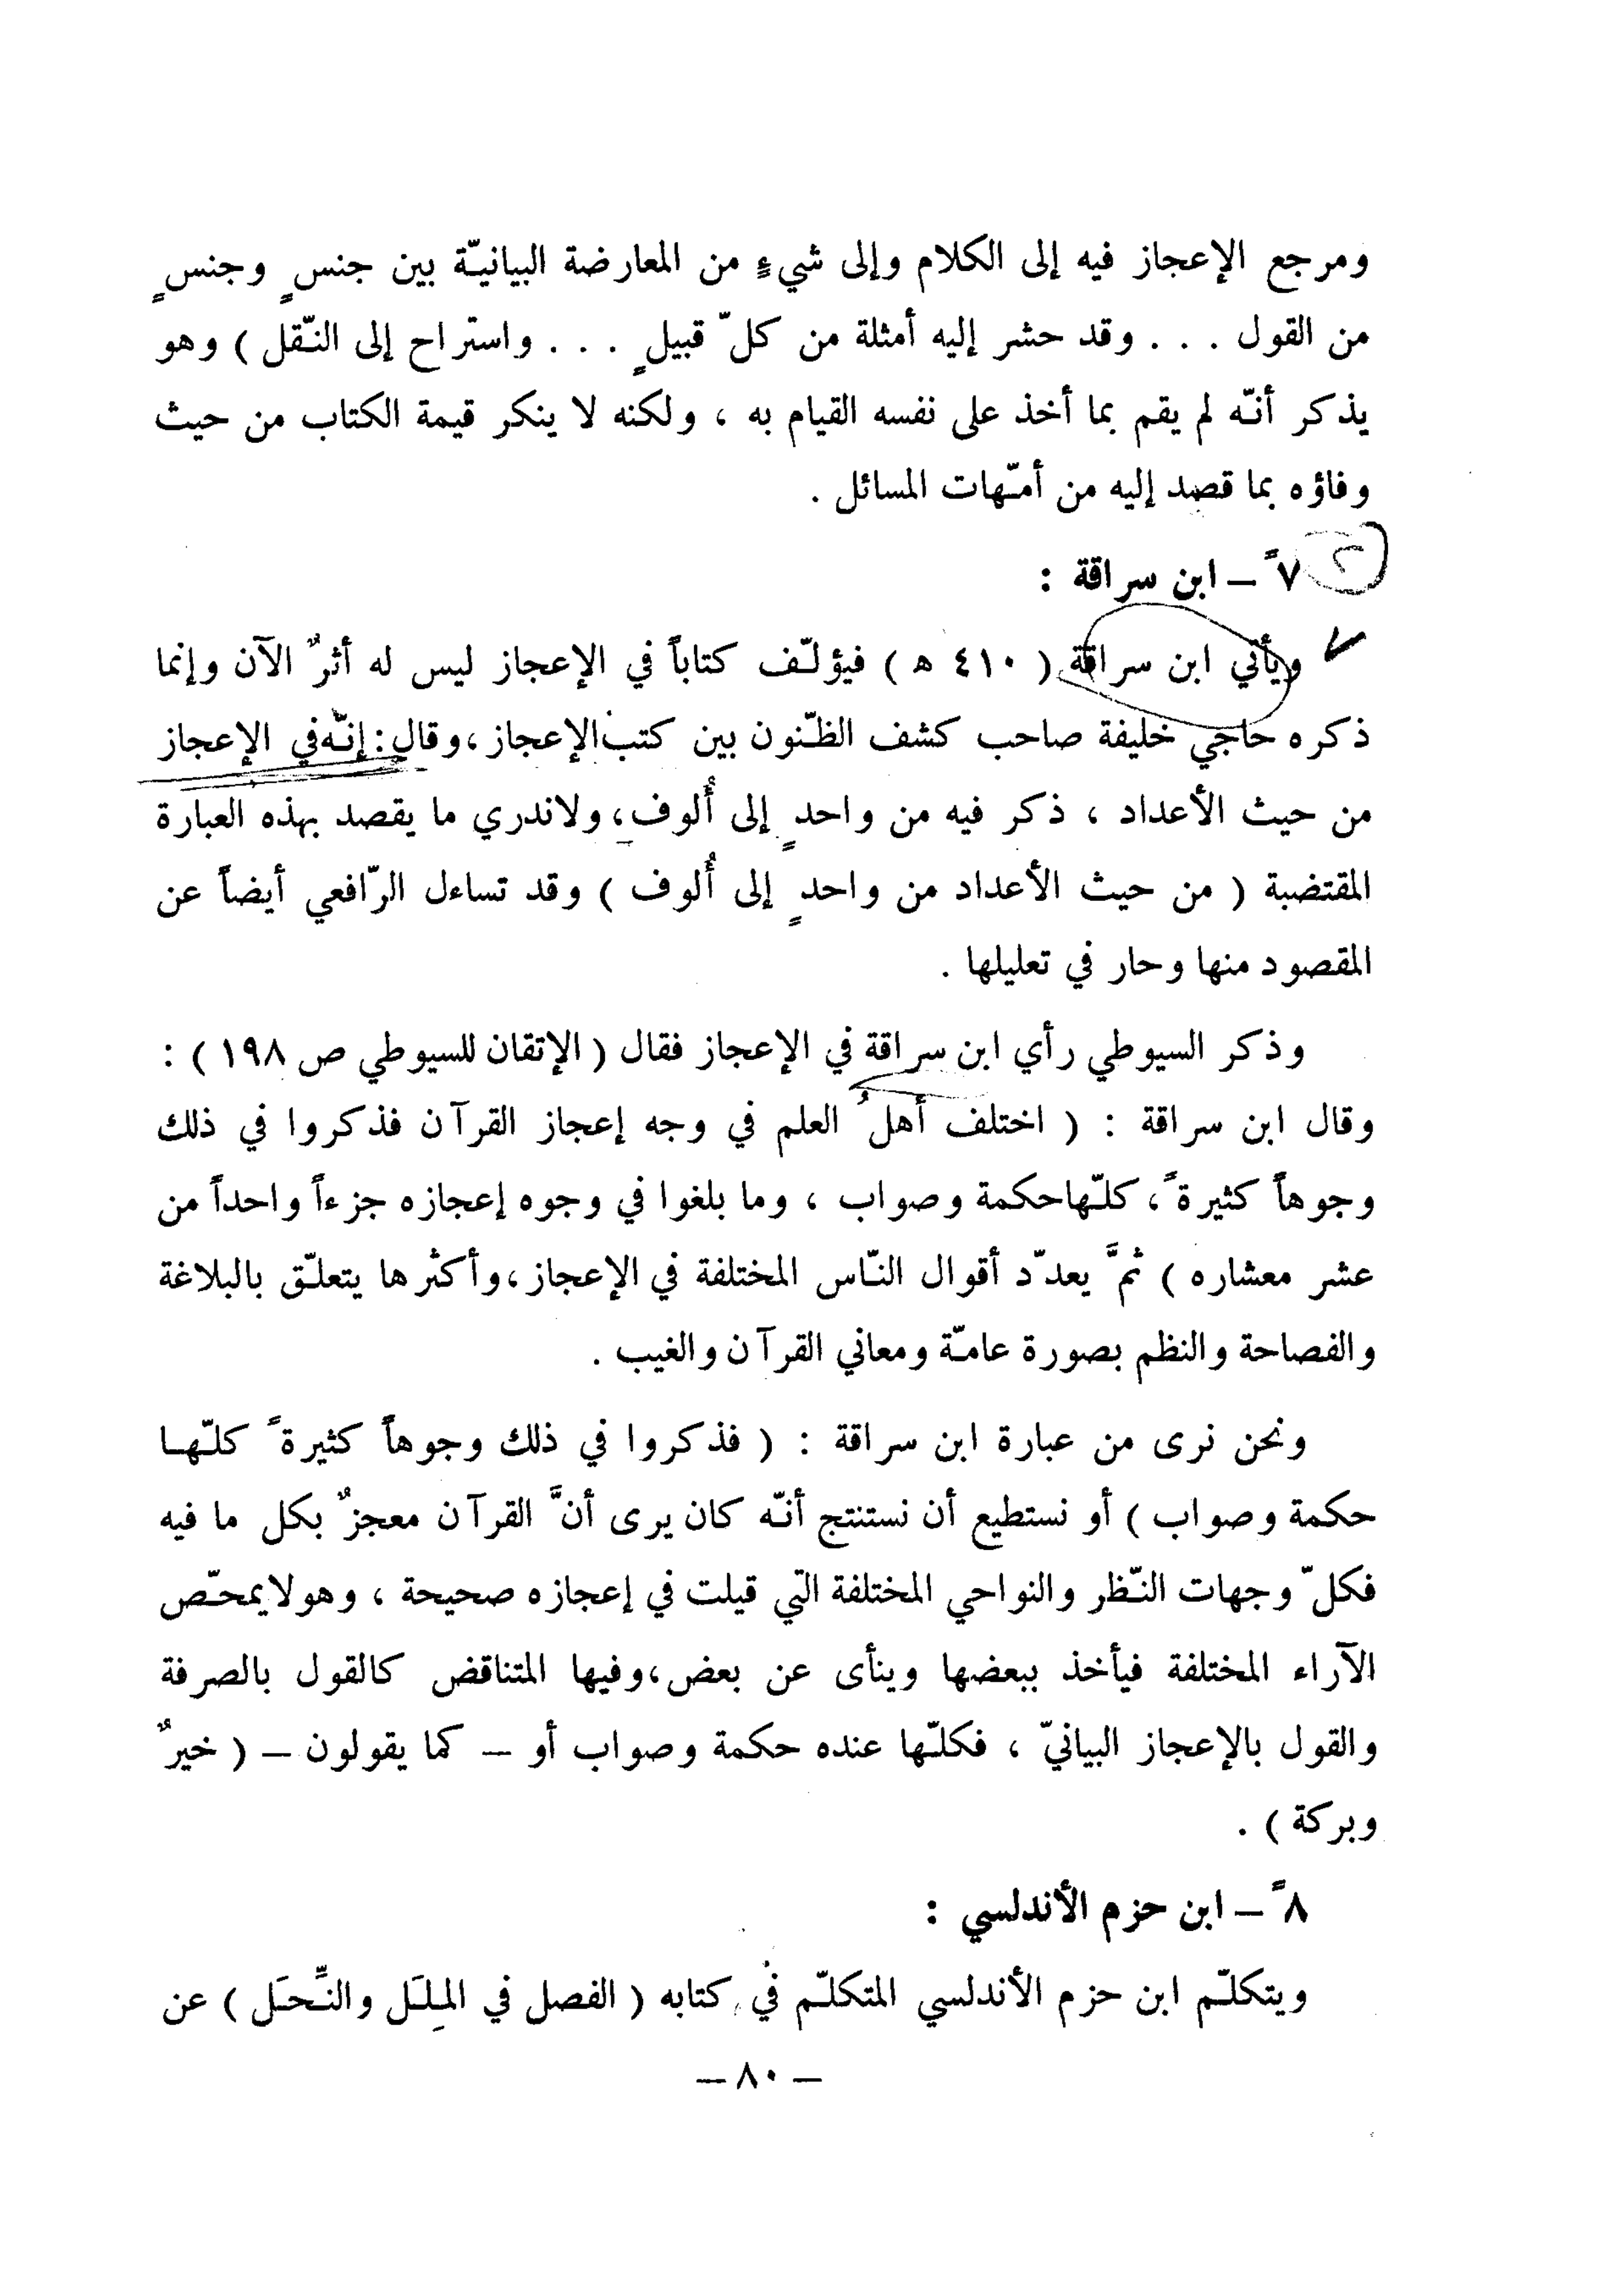 ومرجع الإعجاز فيه إلى الكلام وإلى شيءٍ من المعارضة البيانيّة بين جنسٍ وجنسٍ
من القول . . . وقد حشر إليه أمثلة من كلّ قبيلٍ . . . واستراح إلى النّقل ) وهو
يذكر أنّه لم يقم بما أخذ على نفسه القيام به ، ولكنه لا ينكر قيمة الكتاب من حيث
وفاؤه بما قصد إليه من أمّهات المسائل .
٧ً – ابن سراقة :
ويأتي ابن سراقة ( ٤١٠ ه ) فيؤلّف كتاباً في الإعجاز ليس له أثرٌ الآن وإنما
ذكره حاجي خليفة صاحب كشف الظّنون بين كتب الإعجاز ، وقال : إنّه في الإعجاز
من حيث الأعداد ، ذكر فيه من واحدٍ إلى أُلوف ، ولا ندري ما يقصد بهذه العبارة
المقتضبة ( من حيث الأعداد من واحدٍ إلى أُلوف ) وقد تساءل الرّافعي أيضاً عن
المقصود منها وحار في تعليلها .
وذكر السيوطي رأي ابن سراقة في الإعجاز فقال ( الإتقان للسيوطي ص ١٩٨ ) :
وقال ابن سراقة : ( اختلف أهلُ العلم في وجه إعجاز القرآن فذكروا في ذلك
وجوهاً كثيرةً ، كلّها حكمة وصواب ، وما بلغوا في وجوه إعجازه جزءاً واحداً من
عشر معشاره ) ثمَّ يعدّد أقوال النّاس المختلفة في الإعجاز ، وأكثرها يتعلّق بالبلاغة
والفصاحة والنظم بصورة عامّة ومعاني القرآن والغيب .
ونحن نرى من عبارة ابن سراقة : ( فذكروا في ذلك وجوهاً كثيرةً كلّها
حكمة وصواب ) أو نستطيع أن نستنتج أنّه كان يرى أنَّ القرآن معجزٌ بكل ما فيه
فكلّ وجهات النّظر والنواحي المختلفة التي قيلت في إعجازه صحيحة ، وهو لا يمحّص
الآراء المختلفة فيأخذ ببعضها وينأى عن بعض ، وفيها المتناقض كالقول بالصرفة
والقول بالإعجاز البيانيّ ، فكلّها عنده حكمة وصواب أو – كما يقولون – ( خيرٌ
وبركة ) .
٨ً – ابن حزم الأندلسي :
ويتكلّم ابن حزم الأندلسي المتكلّم في كتابه ( الفصل في المِلَل والنِّحَل ) عن
– ٨٠ –